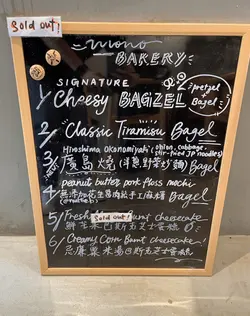 Sold out!
mono
BAKERY
SIGNATURE
1/ Cheesy BAGZEL
pretzel
+
Bagel
2/ Classic Tiramisu Bagel
Hiroshima Okonomiyaki (onion, cabbage,
stir-fried JP noodles)
3/ 廣島燒 (洋葱野菜炒麵) Bagel
4/ peanut butter pork floss mochi
無添加花生醬肉鬆手工麻糬 Bagel
5/ Fresh Burnt cheesecake
Sold out!
鮮芋巴斯克芝士蛋糕
6/ Creamy Corn Burnt cheesecake
忌廉粟米湯巴斯克芝士蛋糕